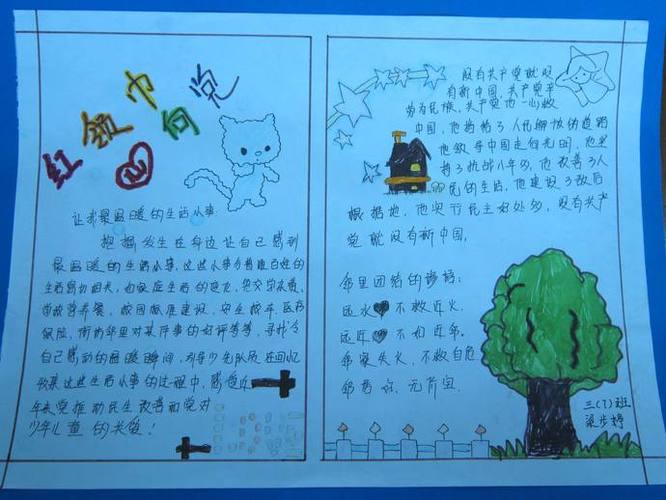 红领巾心向党
让我最温暖的生活小事:
发生在身边让自己感到
最温暖的生活小事,这些小事与普通百姓的
生活密切相关,如家庭生活的变化,公交
营养餐,校园标准建设,安全 医疗
保险,街坊邻里对某件事的好评等等,寻找令
自己感动的温暖瞬间,引导少先队员在回忆
收集这些生活小事的过程中,感受近
年来党推动民生改善和党对
少年儿童的关爱!
没有共产党就没
有新中国,共产党辛
劳为民族,共产党他一心救
中国,他指给了人民解放的道路
他领导中国走向光明,他坚
持了抗战八年多,他改善了人
民的生活,他建设了敌后
根据地,他实行民主好处多,没有共产
党就没有新中国。
邻里团结的谚语:
远水 不救近火,
远近 不如近邻。
邻家失火,不救自危
邻居好,无价宝.
三(7)班